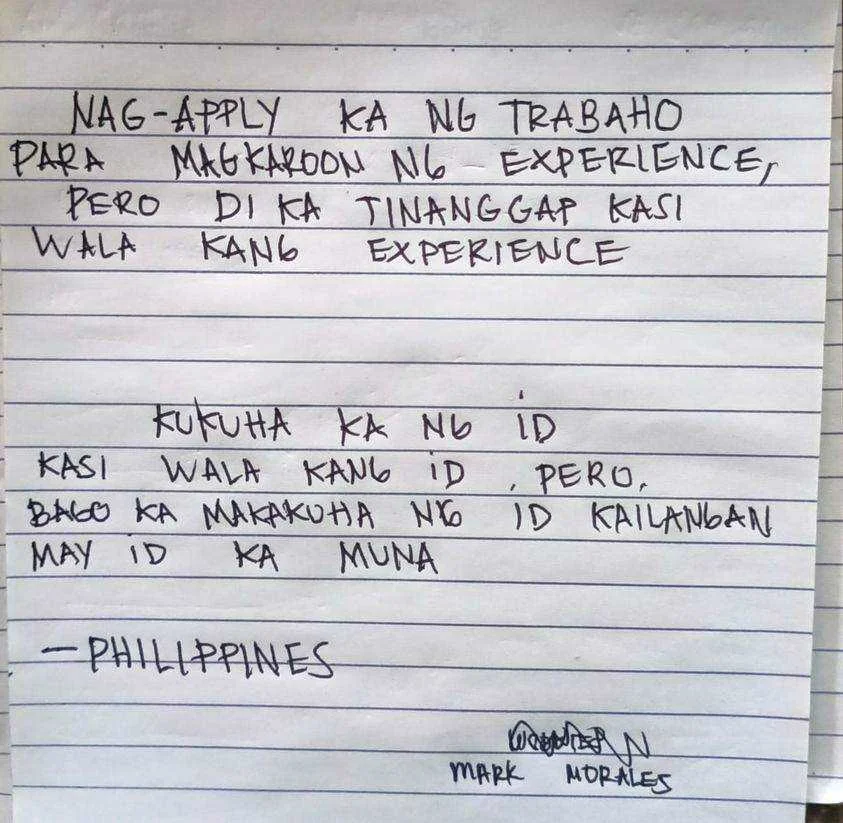 NAG-APPLY KA NG TRABAHO
PARA MAGKAROON NG EXPERIENCE,
PERO DI KA TINANGGAP KASI
WALA KANG EXPERIENCE
KUKUHA KA NG ID
KASI WALA KANG ID , PERO,
BAGO KA MAKAKUHA NG ID KAILANGAN
MAY ID KA MUNA
— PHILIPPINES
MARK MORALES